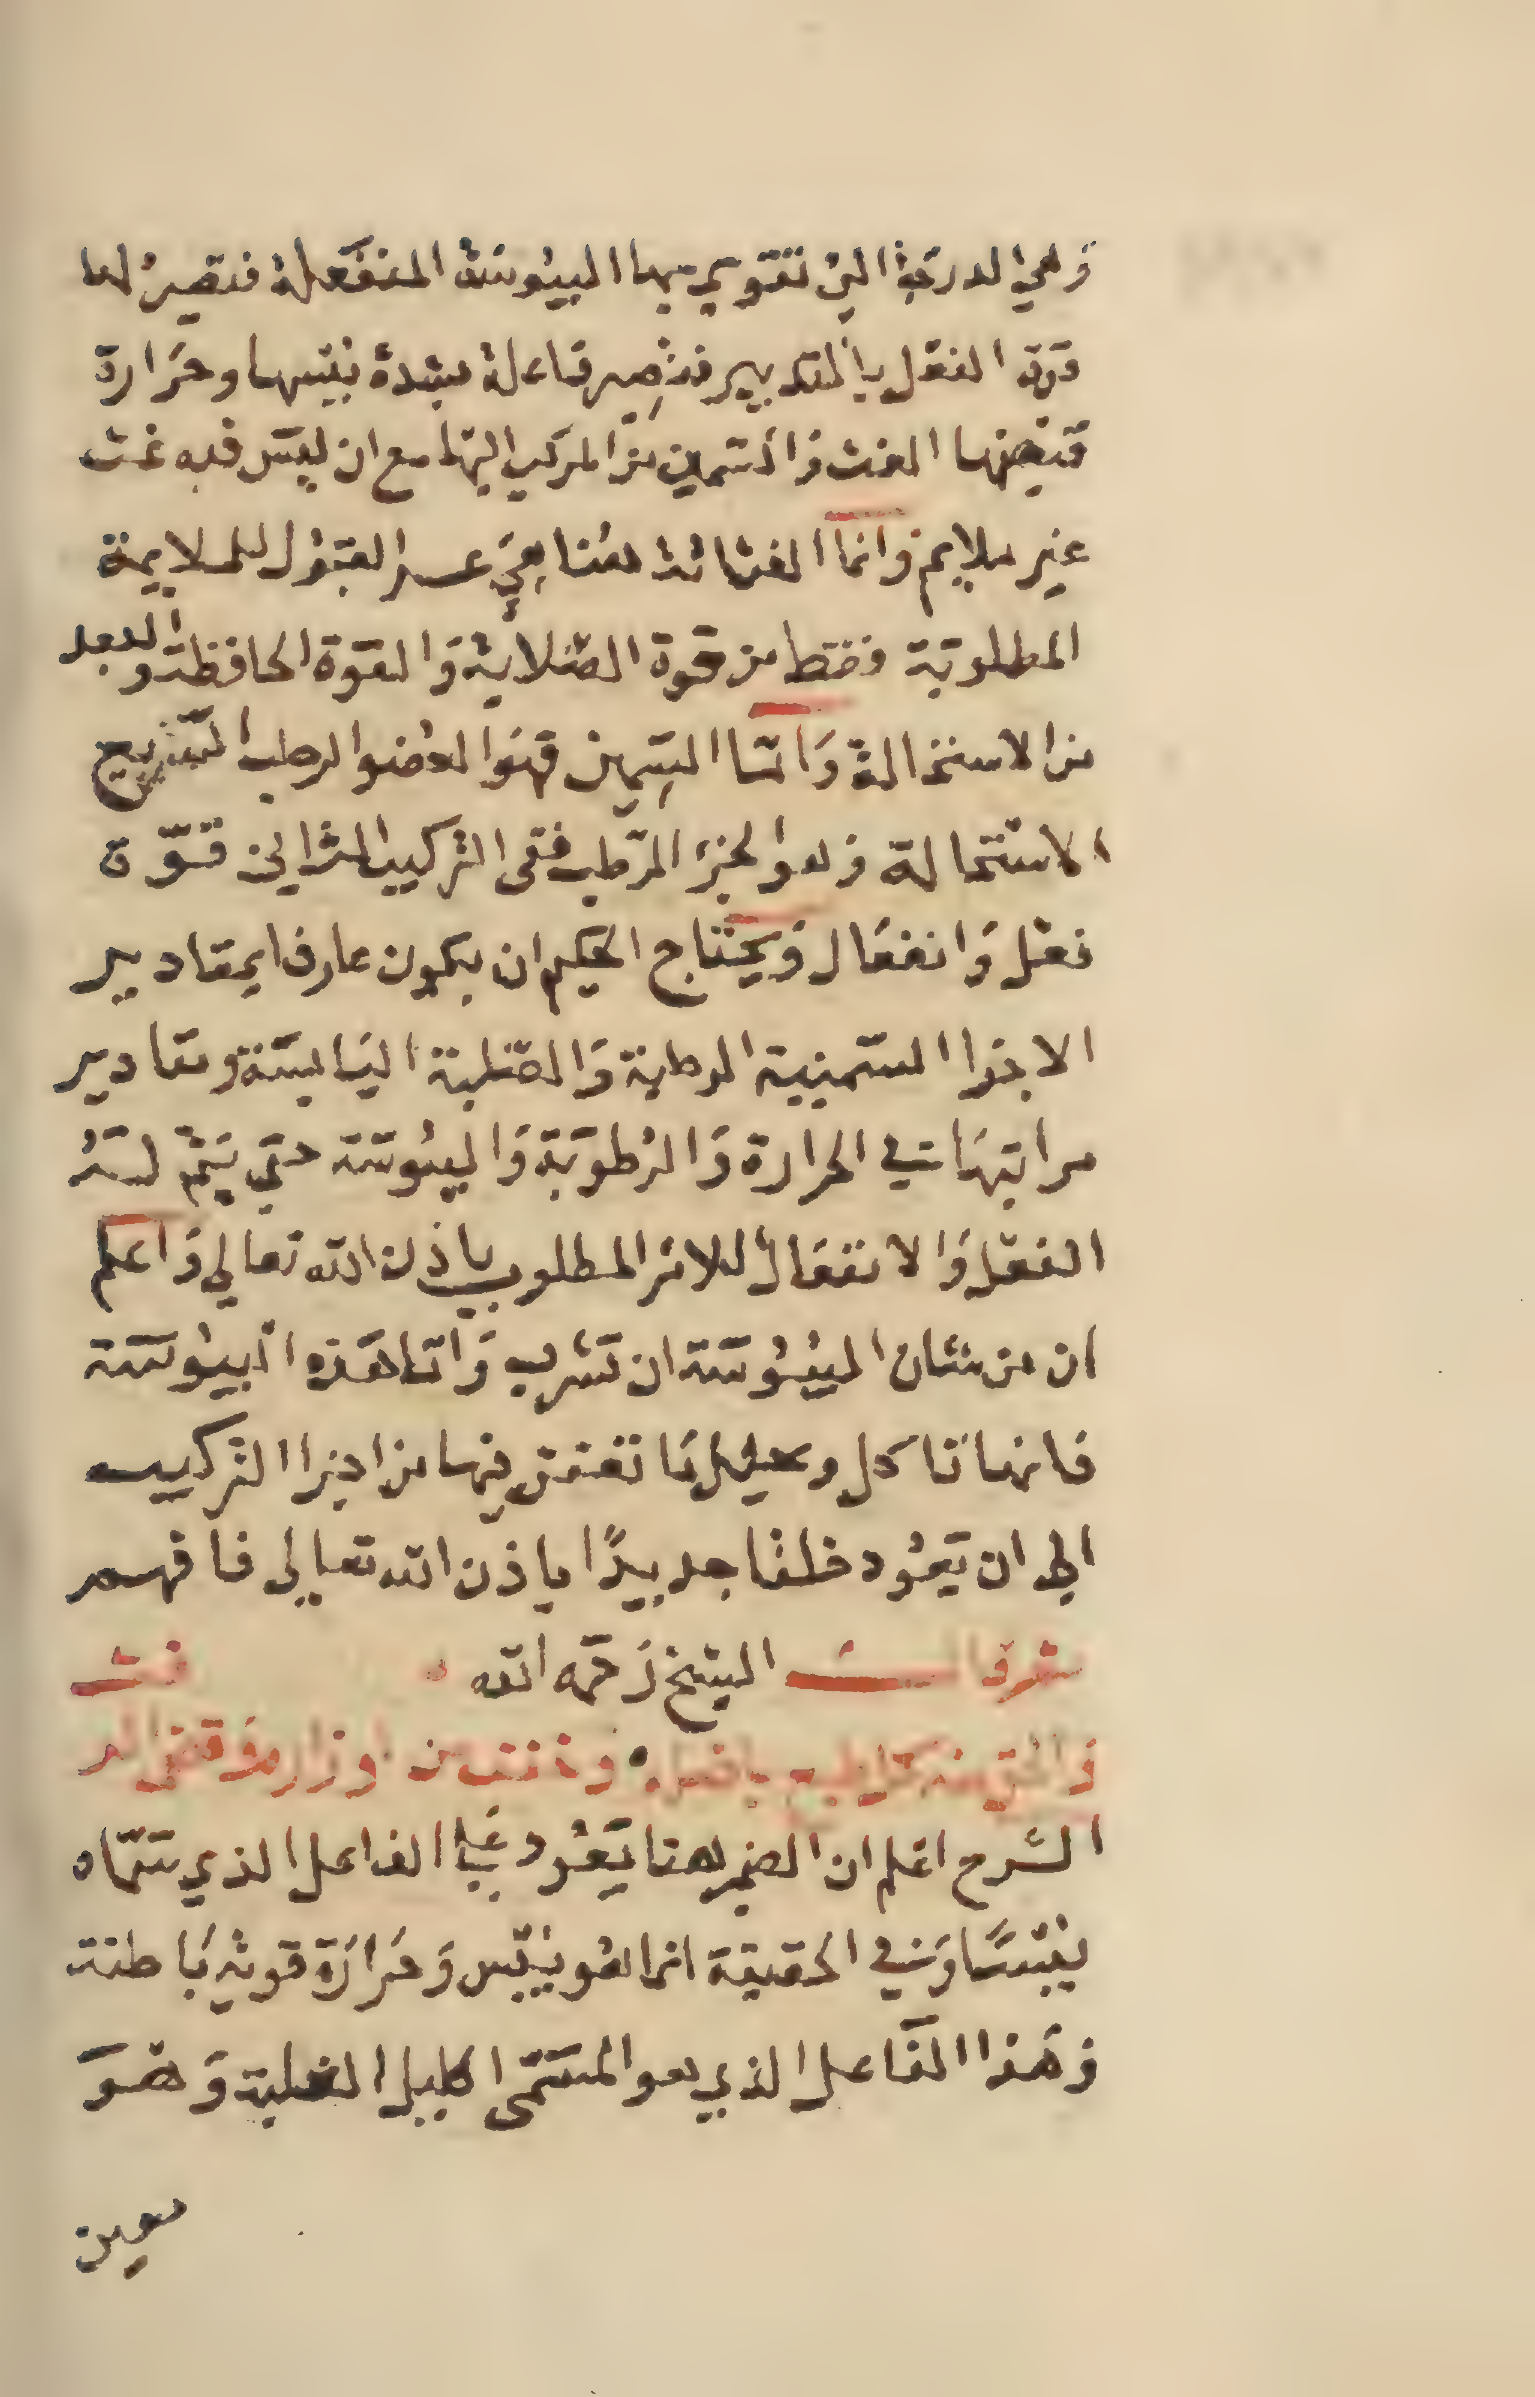 وهي الدرجة التي تتقوي بها اليبوسة المنفعلة فتصير لها
قوة الفعل بالتدبير فتصير فاعلة بشدة يبسها وحرارة
الغث والسمين من المركب اليها مع ان ليس فيه غث
غير ملايم وانما الغثاثة هنا هي عسر القبول للملايمة
المطلوبة فقط من قوة الصلابة والقوة الحافظة والبعد
من الاستحالة واما السمين فهو العضو الرطب السريع
الاستحالة وهو الجزء الرطب ففي التركيب الثاني قوة
فعل وانفعال ويحتاج الحكيم ان يكون عارفا بمقادير
الاجزا السمينية الرطبة والصلبة اليابسة ومقادير
مراتبها في الحرارة والرطوبة واليبوسة حتي يتم له
الفعل والانفعال للامر المطلوب باذن الله تعالي واعلم
ان من شان اليبوسة ان تشرب واما هذه اليبوسة
فانها تاكل وتحيل ما تعفن فيها من اجزا التركيب
الي ان تعود خلقا جديدا باذن الله تعالي فافهم
ثم قال الشيخ رحمه الله
الشرح اعلم ان الضمير هنا يعود علي الفاعل الذي سماه
يبسا وفي الحقيقة انما هو يبس وحرارة قوية باطنة
وهذا الفاعل الذي هو المسمي اكليل الغلبة وهو
معين